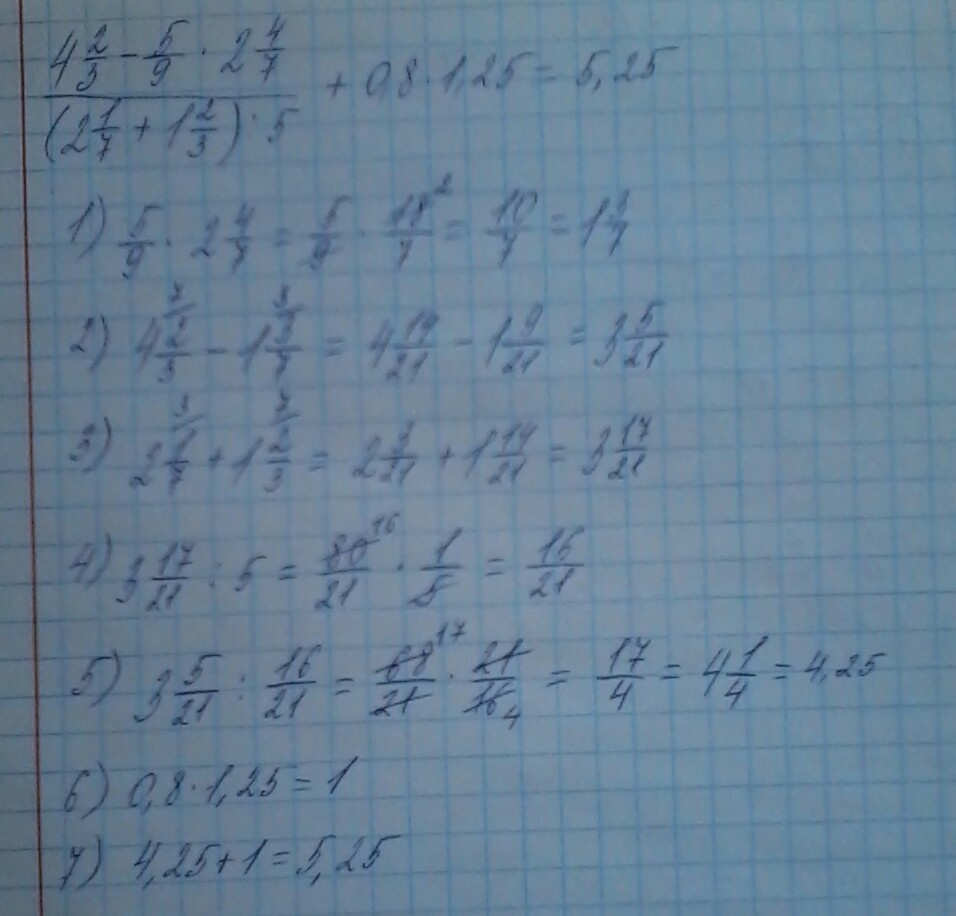 4 2/3 - 5/9 · 2 4/7
(2 1/7 + 1 2/3) : 5
+ 0,8 · 1,25 = 5,25
1) 5/9 · 2 4/7 = 5/9 · 18/7 ² = 10/7 = 1 3/7
2) 4 2/3 ⁷ - 1 3/7 ³ = 4 14/21 - 1 9/21 = 3 5/21
3) 2 1/7 ³ + 1 2/3 ⁷ = 2 3/21 + 1 14/21 = 3 17/21
4) 3 17/21 : 5 = 80/21 ¹⁶ · 1/5 = 16/21
5) 3 5/21 : 16/21 = 68/21 ¹⁷ · 21/16 ₄ = 17/4 = 4 1/4 = 4,25
6) 0,8 · 1,25 = 1
7) 4,25 + 1 = 5,25